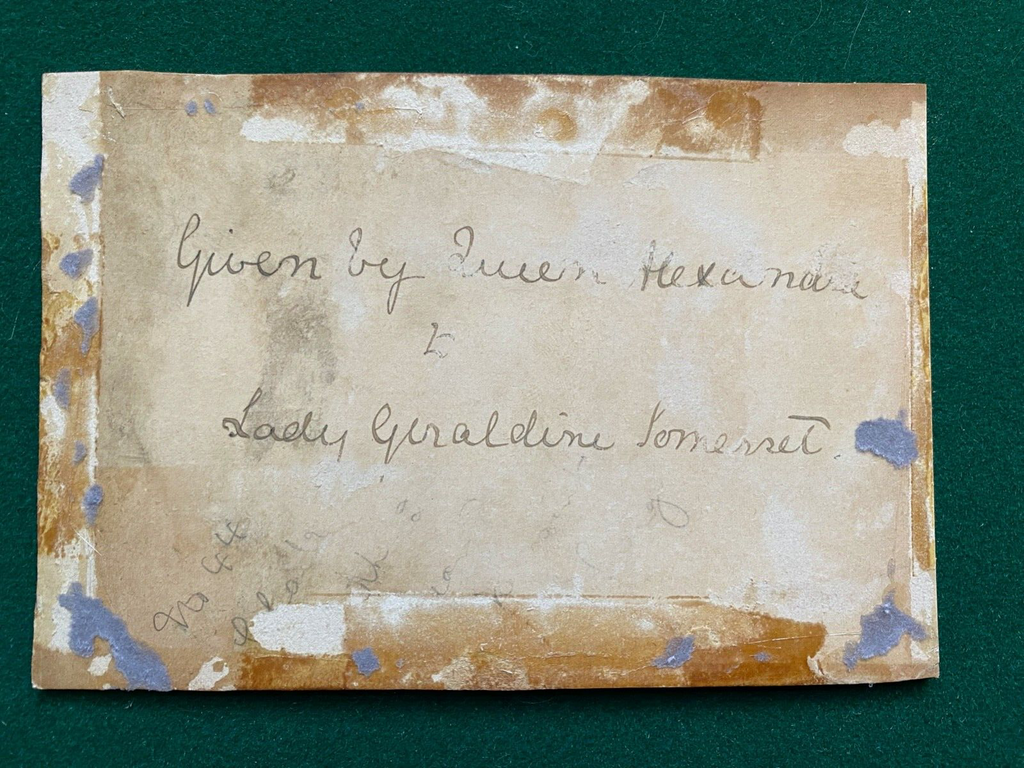 Given by Queen Alexandra
to
Lady Geraldine Somerset.
No 44